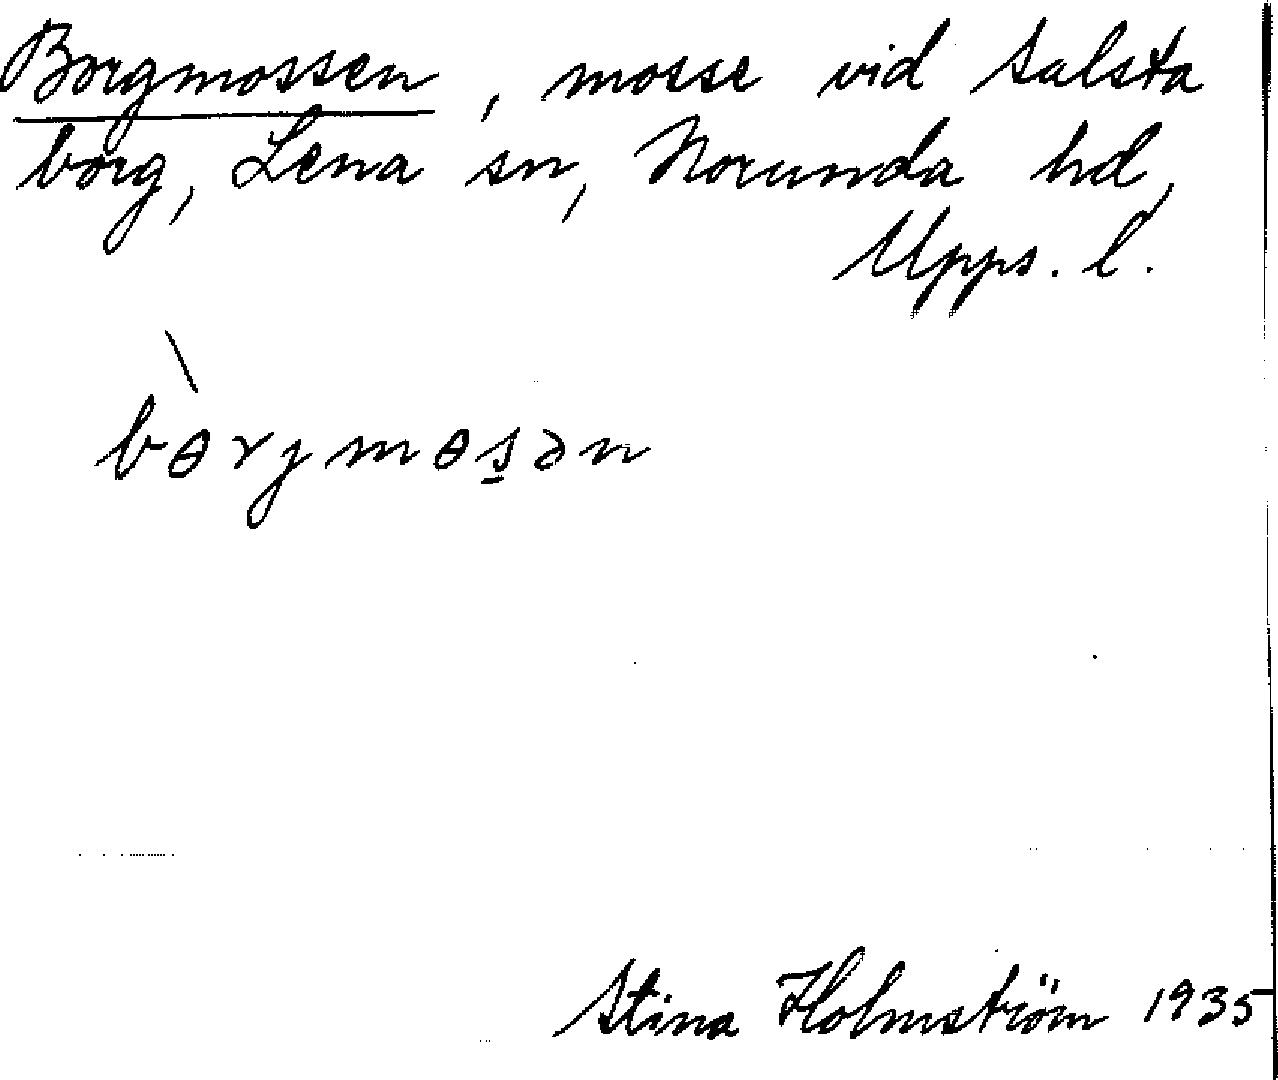 Borgmossen, mosse vid Salsta
borg, Lena sn, Norunda hd,
Upps. l.
bɵrjmɵs̠ən
Stina Holmström 1935